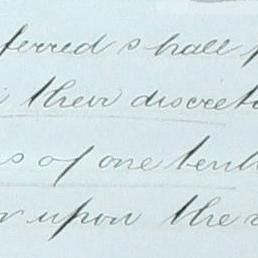 ferred shall
their discret
s of one tenth
r upon the